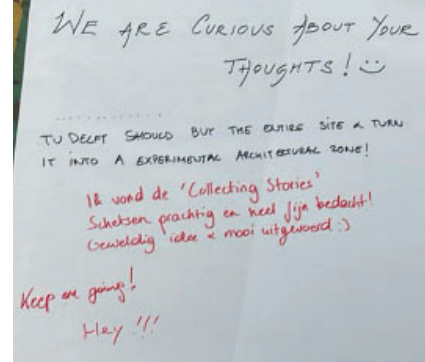 WE ARE CURIOUS ABOUT YOUR
THOUGHTS! :)
.............
TU DELFT SHOULD BUY THE ENTIRE SITE & TURN
IT INTO A EXPERIMENTAL ARCHITECTURAL ZONE!
Ik vond de 'Collecting Stories'
Schetsen prachtig en heel fijn bedacht!
Geweldig idee & mooi uitgevoerd :)
Keep on going!
Hey !!!